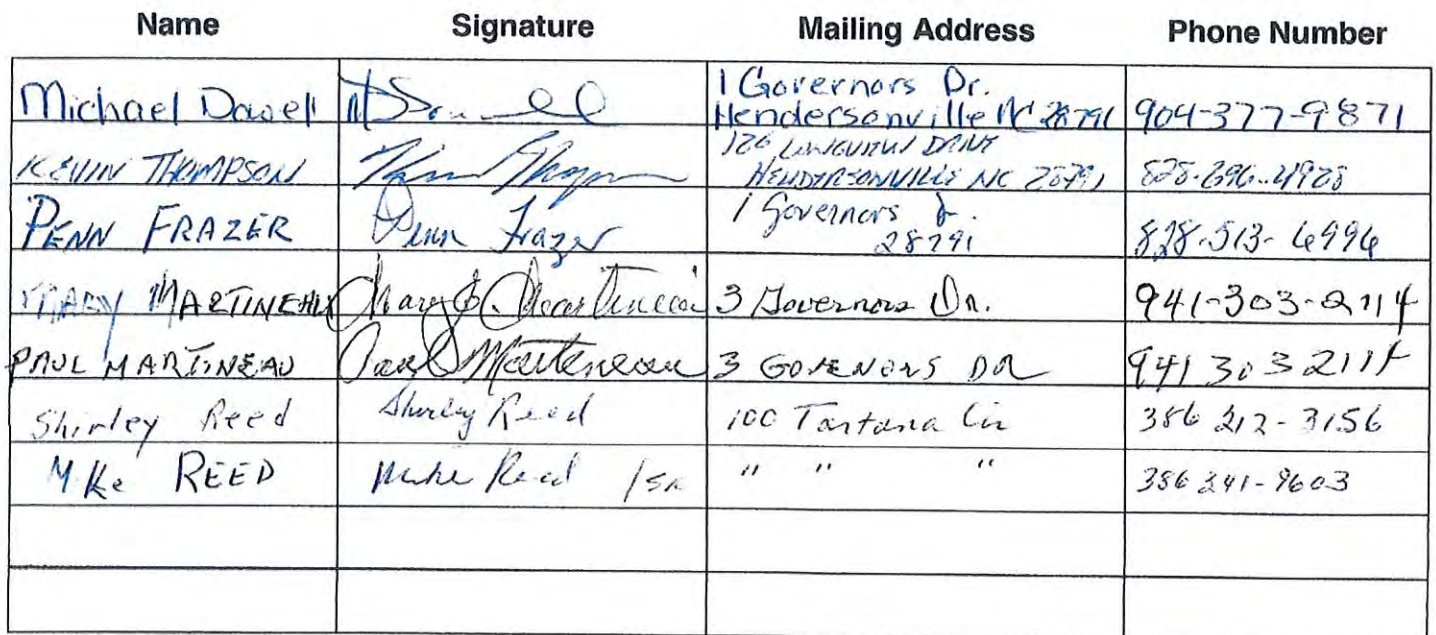 Name Signature Mailing Address Phone Number
Michael Dowell 1 Governors Dr.
Hendersonville NC 28791 904-377-9871
KEVIN THOMPSON 126 DRIVE
HENDERSONVILLE NC 28791 828-696-4928
PENN FRAZER Penn Frazer 1 Governors Dr.
28791 828-513-6996
MARY MARTINEAU Mary Martineau 3 Governors Dr. 941-303-2114
PAUL MARTINEAU Paul Martineau 3 GOVENORS DR 941 303 2114
Shirley Reed Shirley Reed 100 Tartana Cir 386 212-3156
Mike REED Mike Reed /SR " " " 386 241-9603